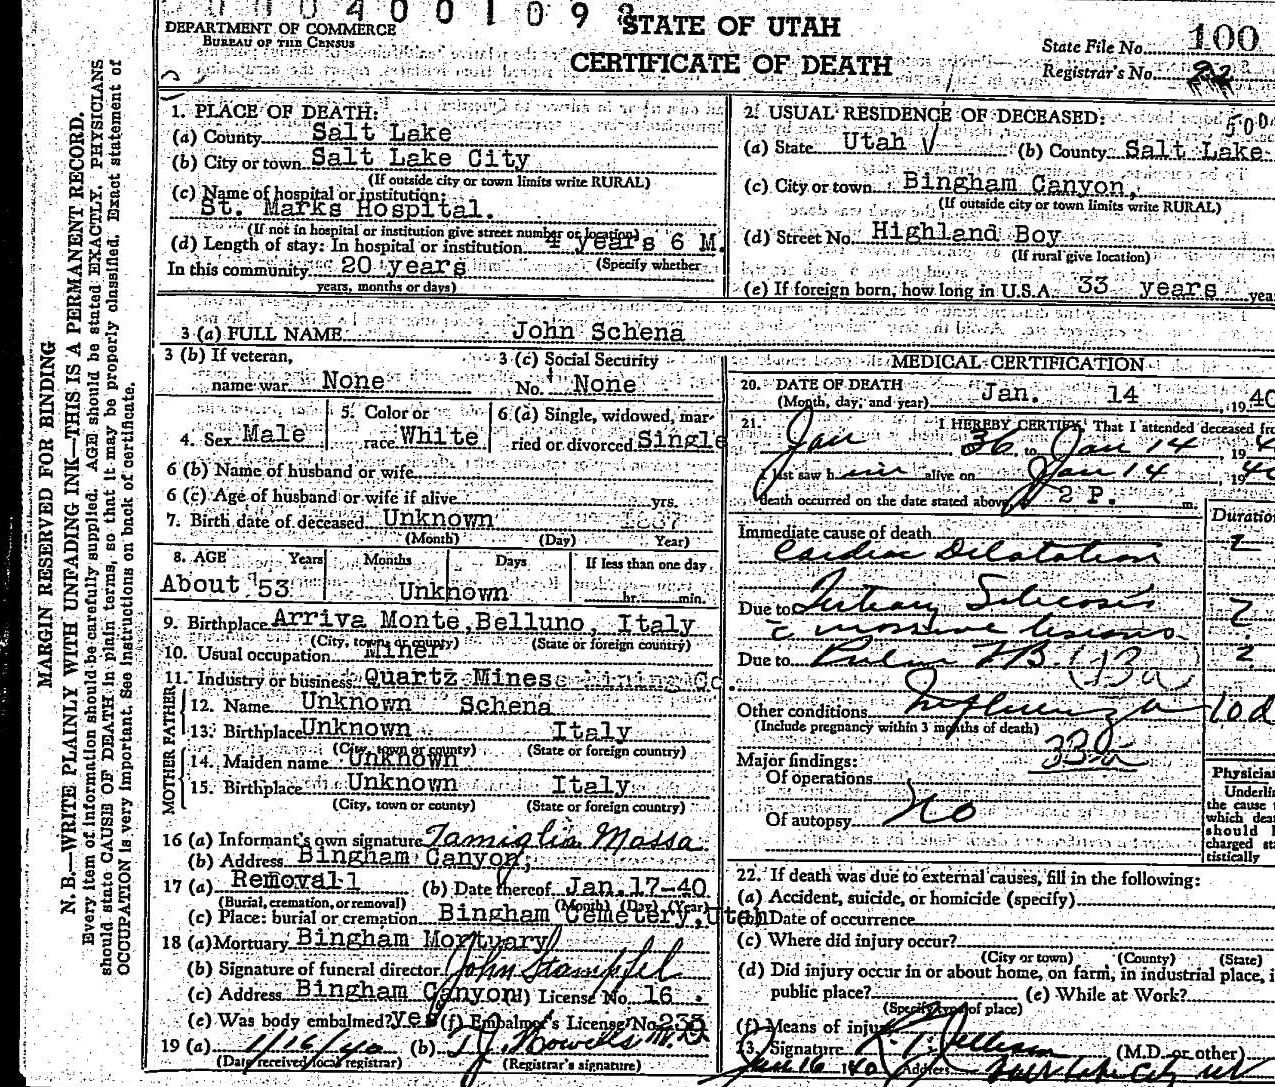 0 0 4 0 0 1 0 9
STATE OF UTAH
CERTIFICATE OF DEATH
DEPARTMENT OF COMMERCE
BUREAU OF THE CENSUS
State File No. 100
Registrar's No.
MARGIN RESERVED FOR BINDING
N. B.—WRITE PLAINLY WITH UNFADING INK—THIS IS A PERMANENT RECORD.
Every item of information should be carefully supplied. AGE should be stated EXACTLY. PHYSICIANS
should state CAUSE OF DEATH in plain terms, so that it may be properly classified. Exact statement of
OCCUPATION is very important. See instructions on back of certificate.
1. PLACE OF DEATH:
(a) County Salt Lake
(b) City or town Salt Lake City
(If outside city or town limits write RURAL)
(c) Name of hospital or institution:
St. Marks Hospital.
(If not in hospital or institution give street number or location)
(d) Length of stay: In hospital or institution 4 years 6 M.
(Specify whether
In this community 20 years
years, months or days)
2. USUAL RESIDENCE OF DECEASED:
(a) State Utah (b) County Salt Lake
(c) City or town Bingham Canyon,
(If outside city or town limits write RURAL)
(d) Street No. Highland Boy
(If rural give location)
(e) If foreign born, how long in U.S.A. 33 years
3 (a) FULL NAME John Schena
3 (b) If veteran, name war None
3 (c) Social Security No. None
4. Sex Male
5. Color or race White
6 (a) Single, widowed, married or divorced Single
6 (b) Name of husband or wife
6 (c) Age of husband or wife if alive yrs.
7. Birth date of deceased Unknown 1887
(Month) (Day) Year)
8. AGE Years Months Days If less than one day
About 53 Unknown hr. min.
9. Birthplace Arriva Monte, Belluno, Italy
(City, town or county) (State or foreign country)
10. Usual occupation Miner
11. Industry or business Quartz Mines
FATHER
12. Name Unknown Schena
13. Birthplace Unknown Italy
(City, town or county) (State or foreign country)
MOTHER
14. Maiden name Unknown
15. Birthplace Unknown Italy
(City, town or county) (State or foreign country)
16 (a) Informant's own signature Famiglia Massa
(b) Address Bingham Canyon,
17 (a) Removal (b) Date thereof Jan. 17-40
(Burial, cremation, or removal) (Month) (Day) (Year)
(c) Place: burial or cremation Bingham Cemetery, Utah
18 (a) Mortuary Bingham Mortuary
(b) Signature of funeral director John Stampfel
(c) Address Bingham Canyon (d) License No. 16
(e) Was body embalmed? yes (f) Embalmer's License No. 233
19 (a) 1/16/40 (b) T J Howells M.D.
(Date received local registrar) (Registrar's signature)
MEDICAL CERTIFICATION
20. DATE OF DEATH
(Month, day, and year) Jan. 14, 1940
21. I HEREBY CERTIFY, That I attended deceased from
Jan 36, to Jan 14, 19
I last saw him alive on Jan 14, 1940
death occurred on the date stated above 2 P. m.
Duration
Immediate cause of death
Cardiac Dilatation
Due to Tertiary Silicosis
c massive lesions
Due to Pulm TB. (13a)
Other conditions Influenza 10d
(Include pregnancy within 3 months of death)
33a
Major findings:
Of operations
Of autopsy No
Physician
Underline
the cause
which death
should
charged
tistically
22. If death was due to external causes, fill in the following:
(a) Accident, suicide, or homicide (specify)
(b) Date of occurrence
(c) Where did injury occur?
(City or town) (County) (State)
(d) Did injury occur in or about home, on farm, in industrial place, i
public place? (e) While at Work?
(Specify type of place)
(f) Means of injury
23. Signature (M.D. or other)
Jan 16 1940 Address Salt Lake City Ut